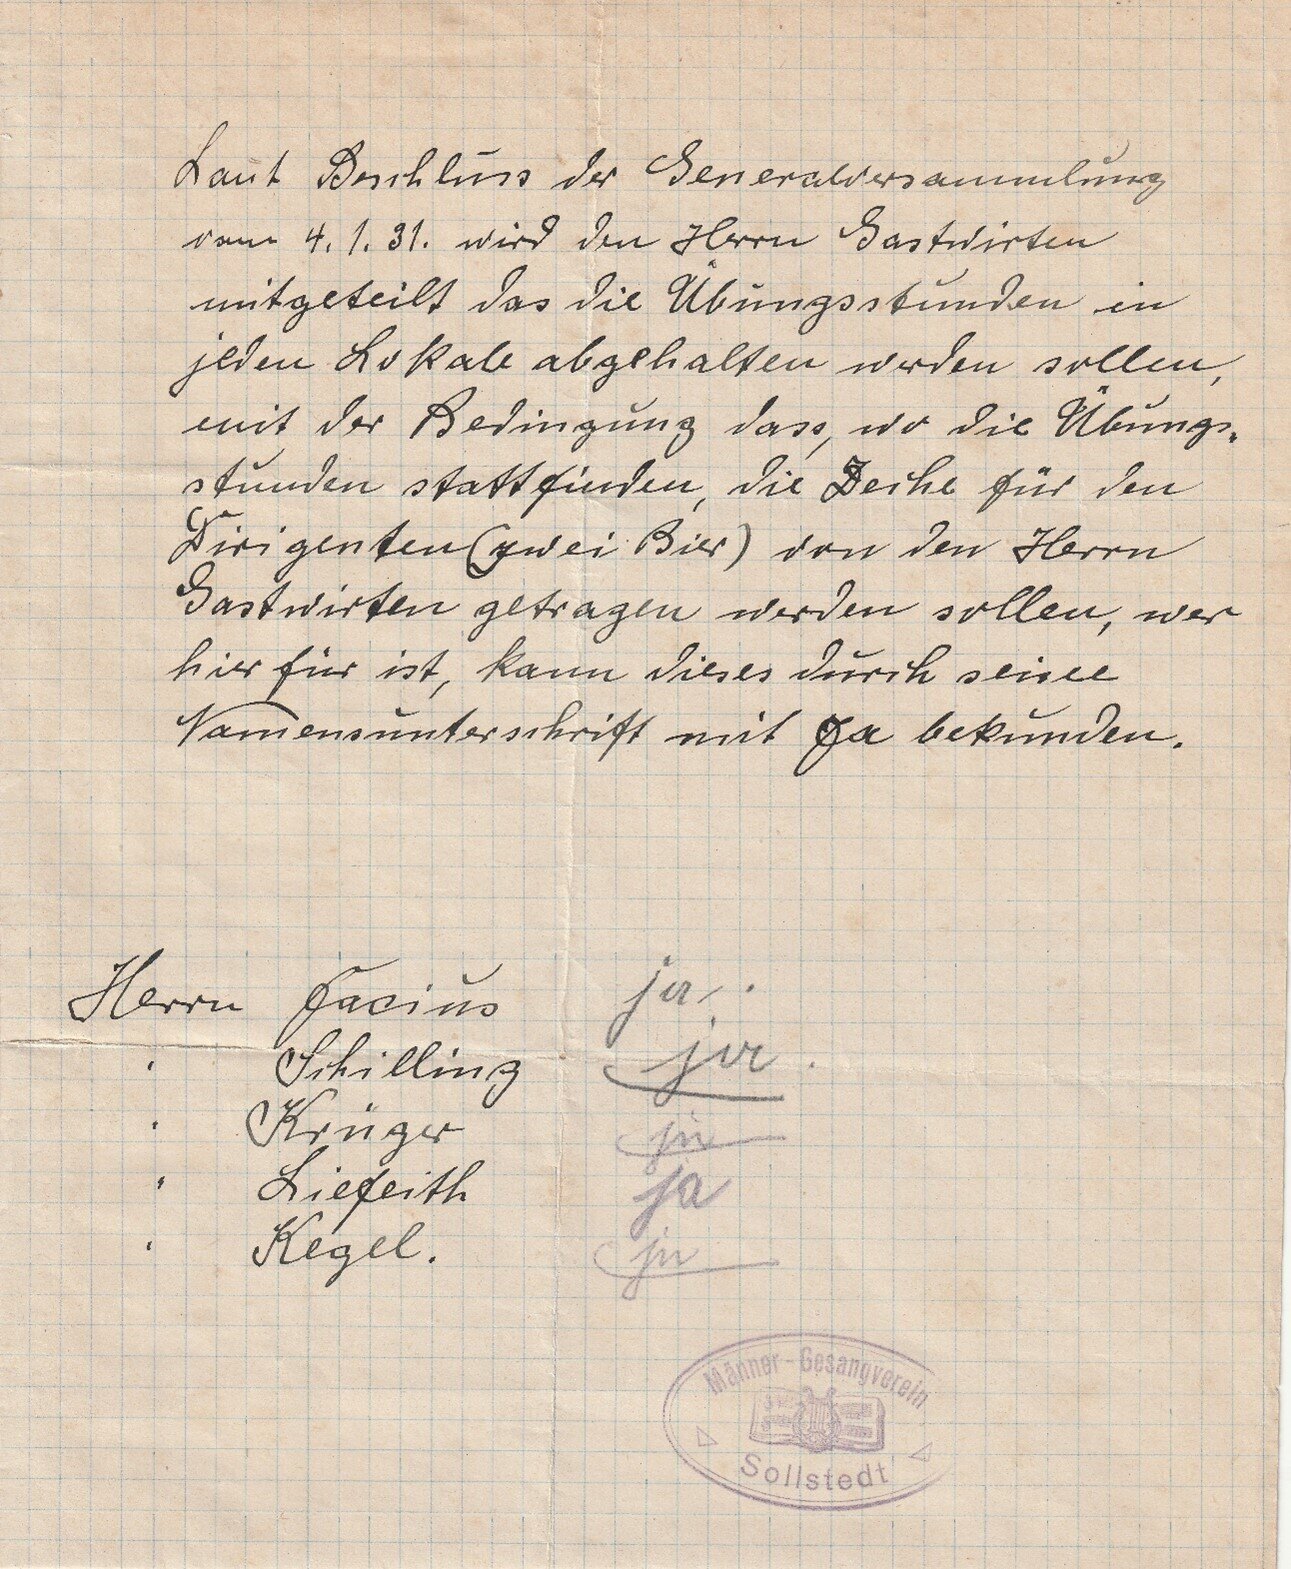 Laut Beschluss der Generalversammlung
vom 4.1.31. wird den Herrn Gastwirten
mitgeteilt das die Übungsstunden in
jeden Lokale abgehalten werden sollen,
mit der Bedingung dass, wo die Übungs-
stunden stattfinden, die Zeche für den
Dirigenten (zwei Bier) von den Herrn
Gastwirten getragen werden sollen, wer
hier für ist, kann dieses durch seine
Namensunterschrift mit Ja bekunden.
Herrn Facius ja.
" Schilling ja.
" Krüger ja
" Liefeith ja
" Kegel. ja
Männer-Gesangverein
Sollstedt